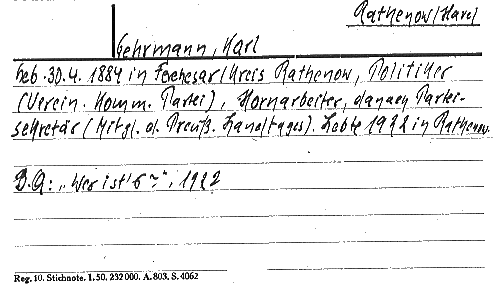 Rathenow/Havel
Gehrmann, Karl
Geb. 30.4. 1884 in Ferchesar/Kreis Rathenow, Politiker
(Verein. Komm. Partei), Hornarbeiter, danach Partei-
sekretär (Mitgl. d. Preuß. Landtages). Lebte 1922 in Rathenow.
B.Q: „Wer ist's?", 1922
Reg. 10. Stichnote. 1.50. 232000. A. 803. S. 4062